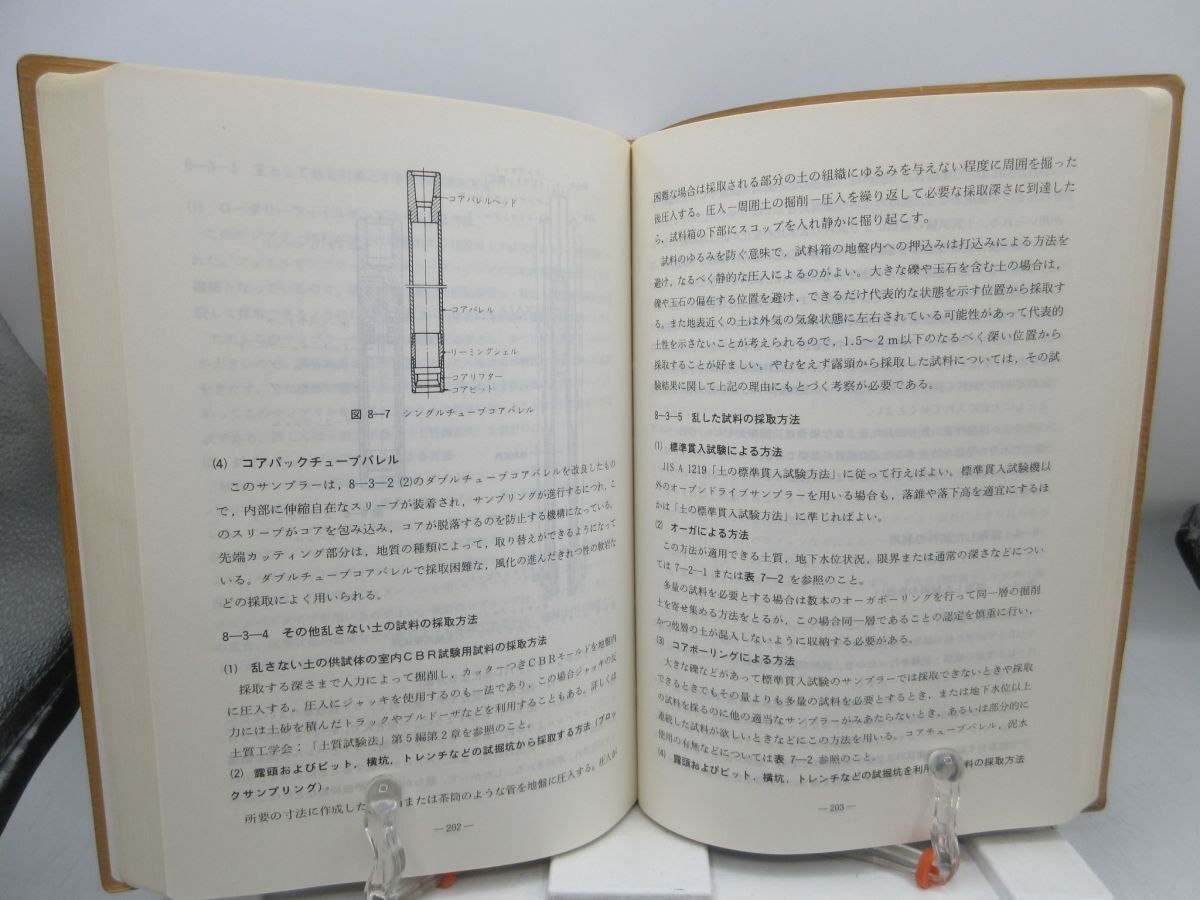 コアバレルヘッド
コアバレル
リーミングシェル
コアリフター
コアビット
図 8―7 シングルチューブコアバレル
(4) コアパックチューブバレル
このサンプラーは，8―3―2 (2)のダブルチューブコアバレルを改良したもの
で，内部に伸縮自在なスリーブが装着され，サンプリングが進行するにつれ，こ
のスリーブがコアを包み込み，コアが脱落するのを防止する機構になっている。
先端カッティング部分は，地質の種類によって，取り替えができるようになって
いる。ダブルチューブコアバレルで採取困難な，風化の進んだきれつ性の軟岩な
どの採取によく用いられる。
8―3―4 その他乱さない土の試料の採取方法
(1) 乱さない土の供試体の室内CBR試験用試料の採取方法
採取する深さまで人力によって掘削し，カッターつきCBRモールドを地盤内
に圧入する。圧入にジャッキを使用するのも一法であり，この場合ジャッキの反
力には土砂を積んだトラックやブルドーザなどを利用することもある。詳しくは
土質工学会：「土質試験法」第5編第2章を参照のこと。
(2) 露頭およびピット，横坑，トレンチなどの試掘坑から採取する方法（ブロッ
クサンプリング）。
所要の寸法に作成した または茶筒のような管を地盤に圧入する。圧入が
―202―
困難な場合は採取される部分の土の組織にゆるみを与えない程度に周囲を掘った
後圧入する。圧入－周囲土の掘削－圧入を繰り返して必要な採取深さに到達した
ら，試料箱の下部にスコップを入れ静かに掘り起こす。
試料のゆるみを防ぐ意味で，試料箱の地盤内への押込みは打込みによる方法を
避け，なるべく静的な圧入によるのがよい。大きな礫や玉石を含む土の場合は，
礫や玉石の偏在する位置を避け，できるだけ代表的な状態を示す位置から採取す
る。また地表近くの土は外気の気象状態に左右されている可能性があって代表的
土性を示さないことが考えられるので，1.5～2m以下のなるべく深い位置から
採取することが好ましい。やむをえず露頭から採取した試料については，その試
験結果に関して上記の理由にもとづく考察が必要である。
8―3―5 乱した試料の採取方法
(1) 標準貫入試験による方法
JIS A 1219「土の標準貫入試験方法」に従って行えばよい。標準貫入試験機以
外のオープンドライブサンプラーを用いる場合も，落錘や落下高を適宜にするほ
かは「土の標準貫入試験方法」に準じればよい。
(2) オーガによる方法
この方法が適用できる土質，地下水位状況，限界または通常の深さなどについ
ては 7―2―1 または表 7―2 を参照のこと。
多量の試料を必要とする場合は数本のオーガボーリングを行って同一層の掘削
土を寄せ集める方法をとるが，この場合同一層であることの認定を慎重に行い，
かつ他層の土が混入しないように収納する必要がある。
(3) コアボーリングによる方法
大きな礫などがあって標準貫入試験のサンプラーでは採取できないときや採取
できるときでもその量よりも多量の試料を必要とするとき，または地下水位以上
の試料を採るのに他の適当なサンプラーがみあたらないとき，あるいは部分的に
連続した試料が欲しいときなどにこの方法を用いる。コアチューブバレル，泥水
使用の有無などについては表 7―2 参照のこと。
(4) 露頭およびピット，横坑，トレンチなどの試掘坑を利用 料の採取方法
―203―